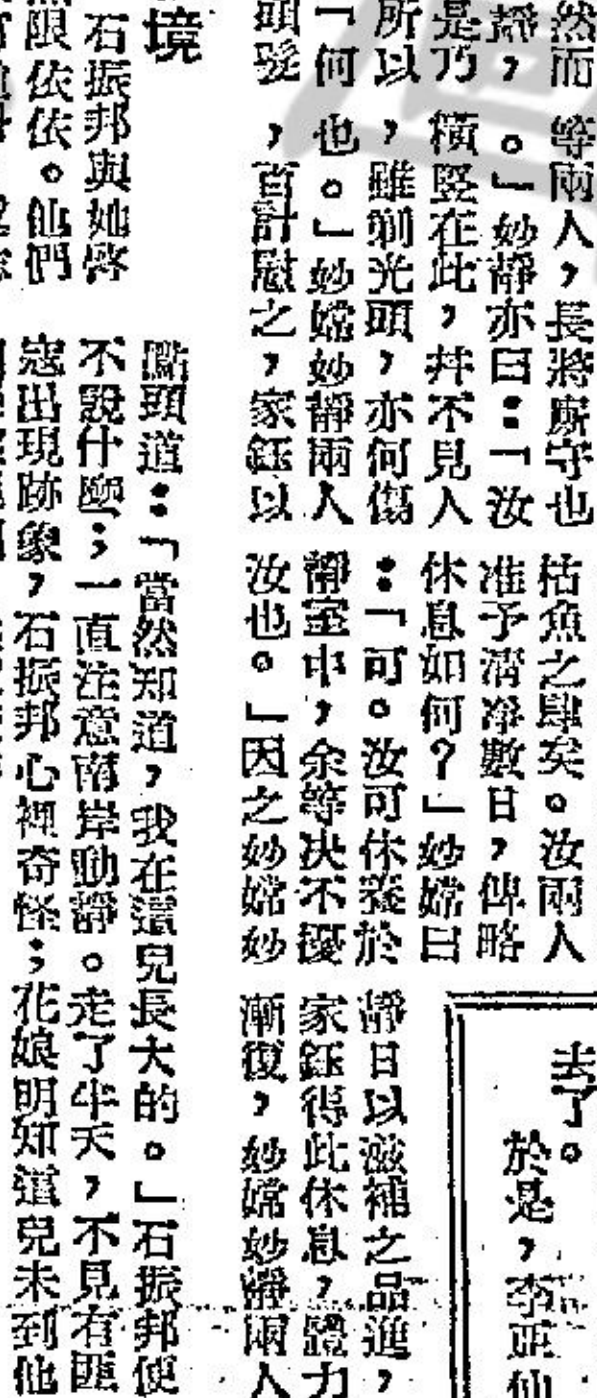 然而
靜，
是乃
所以
「何
頭髮
等兩人，長將廝守也
。」妙靜亦曰：「汝
橫豎在此，幷不見人
，雖剃光頭，亦何傷
也。」妙嫦妙靜兩人
，百計慰之，家鈺以
枯魚之肆矣。汝兩人
准予清淨數日，俾略
休息如何？」妙嫦曰
：「可。汝可休養於
靜室中，余等決不擾
汝也。」因之妙嫦妙
靜日以滋補之品進，
家鈺得此休息，體力
漸復，妙嫦妙靜兩人
去了。
於是，李亞仙
境
石振邦與她啓
限依依。他們
點頭道：「當然知道，我在這兒長大的。」石振邦便
不說什麼；一直注意南岸動靜。走了半天，不見有匪
寇出現跡象，石振邦心裡奇怪；花娘明知道兒未到他